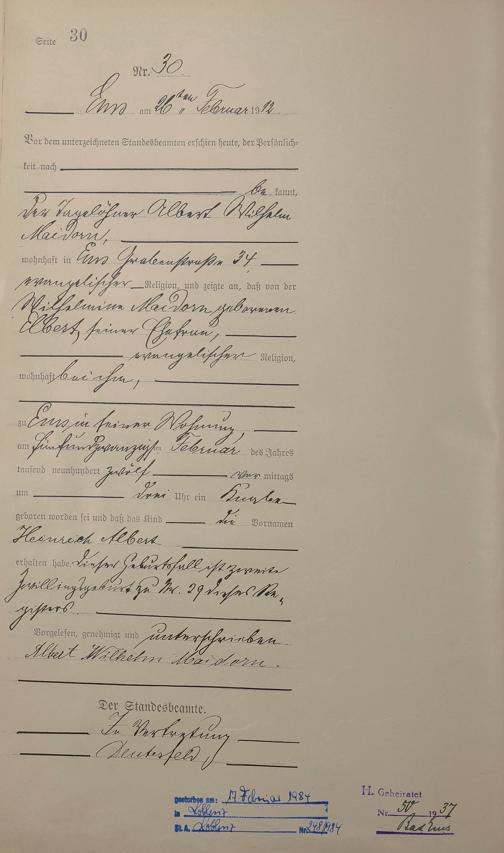 Seite 30
Nr. 30
Ems am 26ten Februar 1912
Vor dem unterzeichneten Standesbeamten erschien heute, der Persönlich-
keit nach
be kannt,
der Tagelöhner Albert Wilhelm
Maidorn,
wohnhaft in Ems Grabenstraße 34
evangelischer Religion, und zeigte an, daß von der
Wilhelmine Maidorn geborenen
Elbert, seiner Ehefrau,
evangelischer Religion,
wohnhaft bei ihm,
zu Ems in seiner Wohnung,
am fünfundzwanzigsten Februar des Jahres
tausend neunhundert zwölf vor mittags
um drei Uhr ein Knabe
geboren worden sei und daß das Kind die Vornamen
Heinrich Albert
erhalten habe. Dieser Geburtsfall ist zweite
Zwillingsgeburt zu Nr. 29 dieses Re-
gisters.
Vorgelesen, genehmigt und unterschrieben
Albert Wilhelm Maidorn.
Der Standesbeamte.
In Vertretung
gestorben am: 17 Februar 1984
in Koblenz
St. A. Koblenz Nr. 348/1984
H. Geheiratet
Nr. 50 1937
Bad Ems